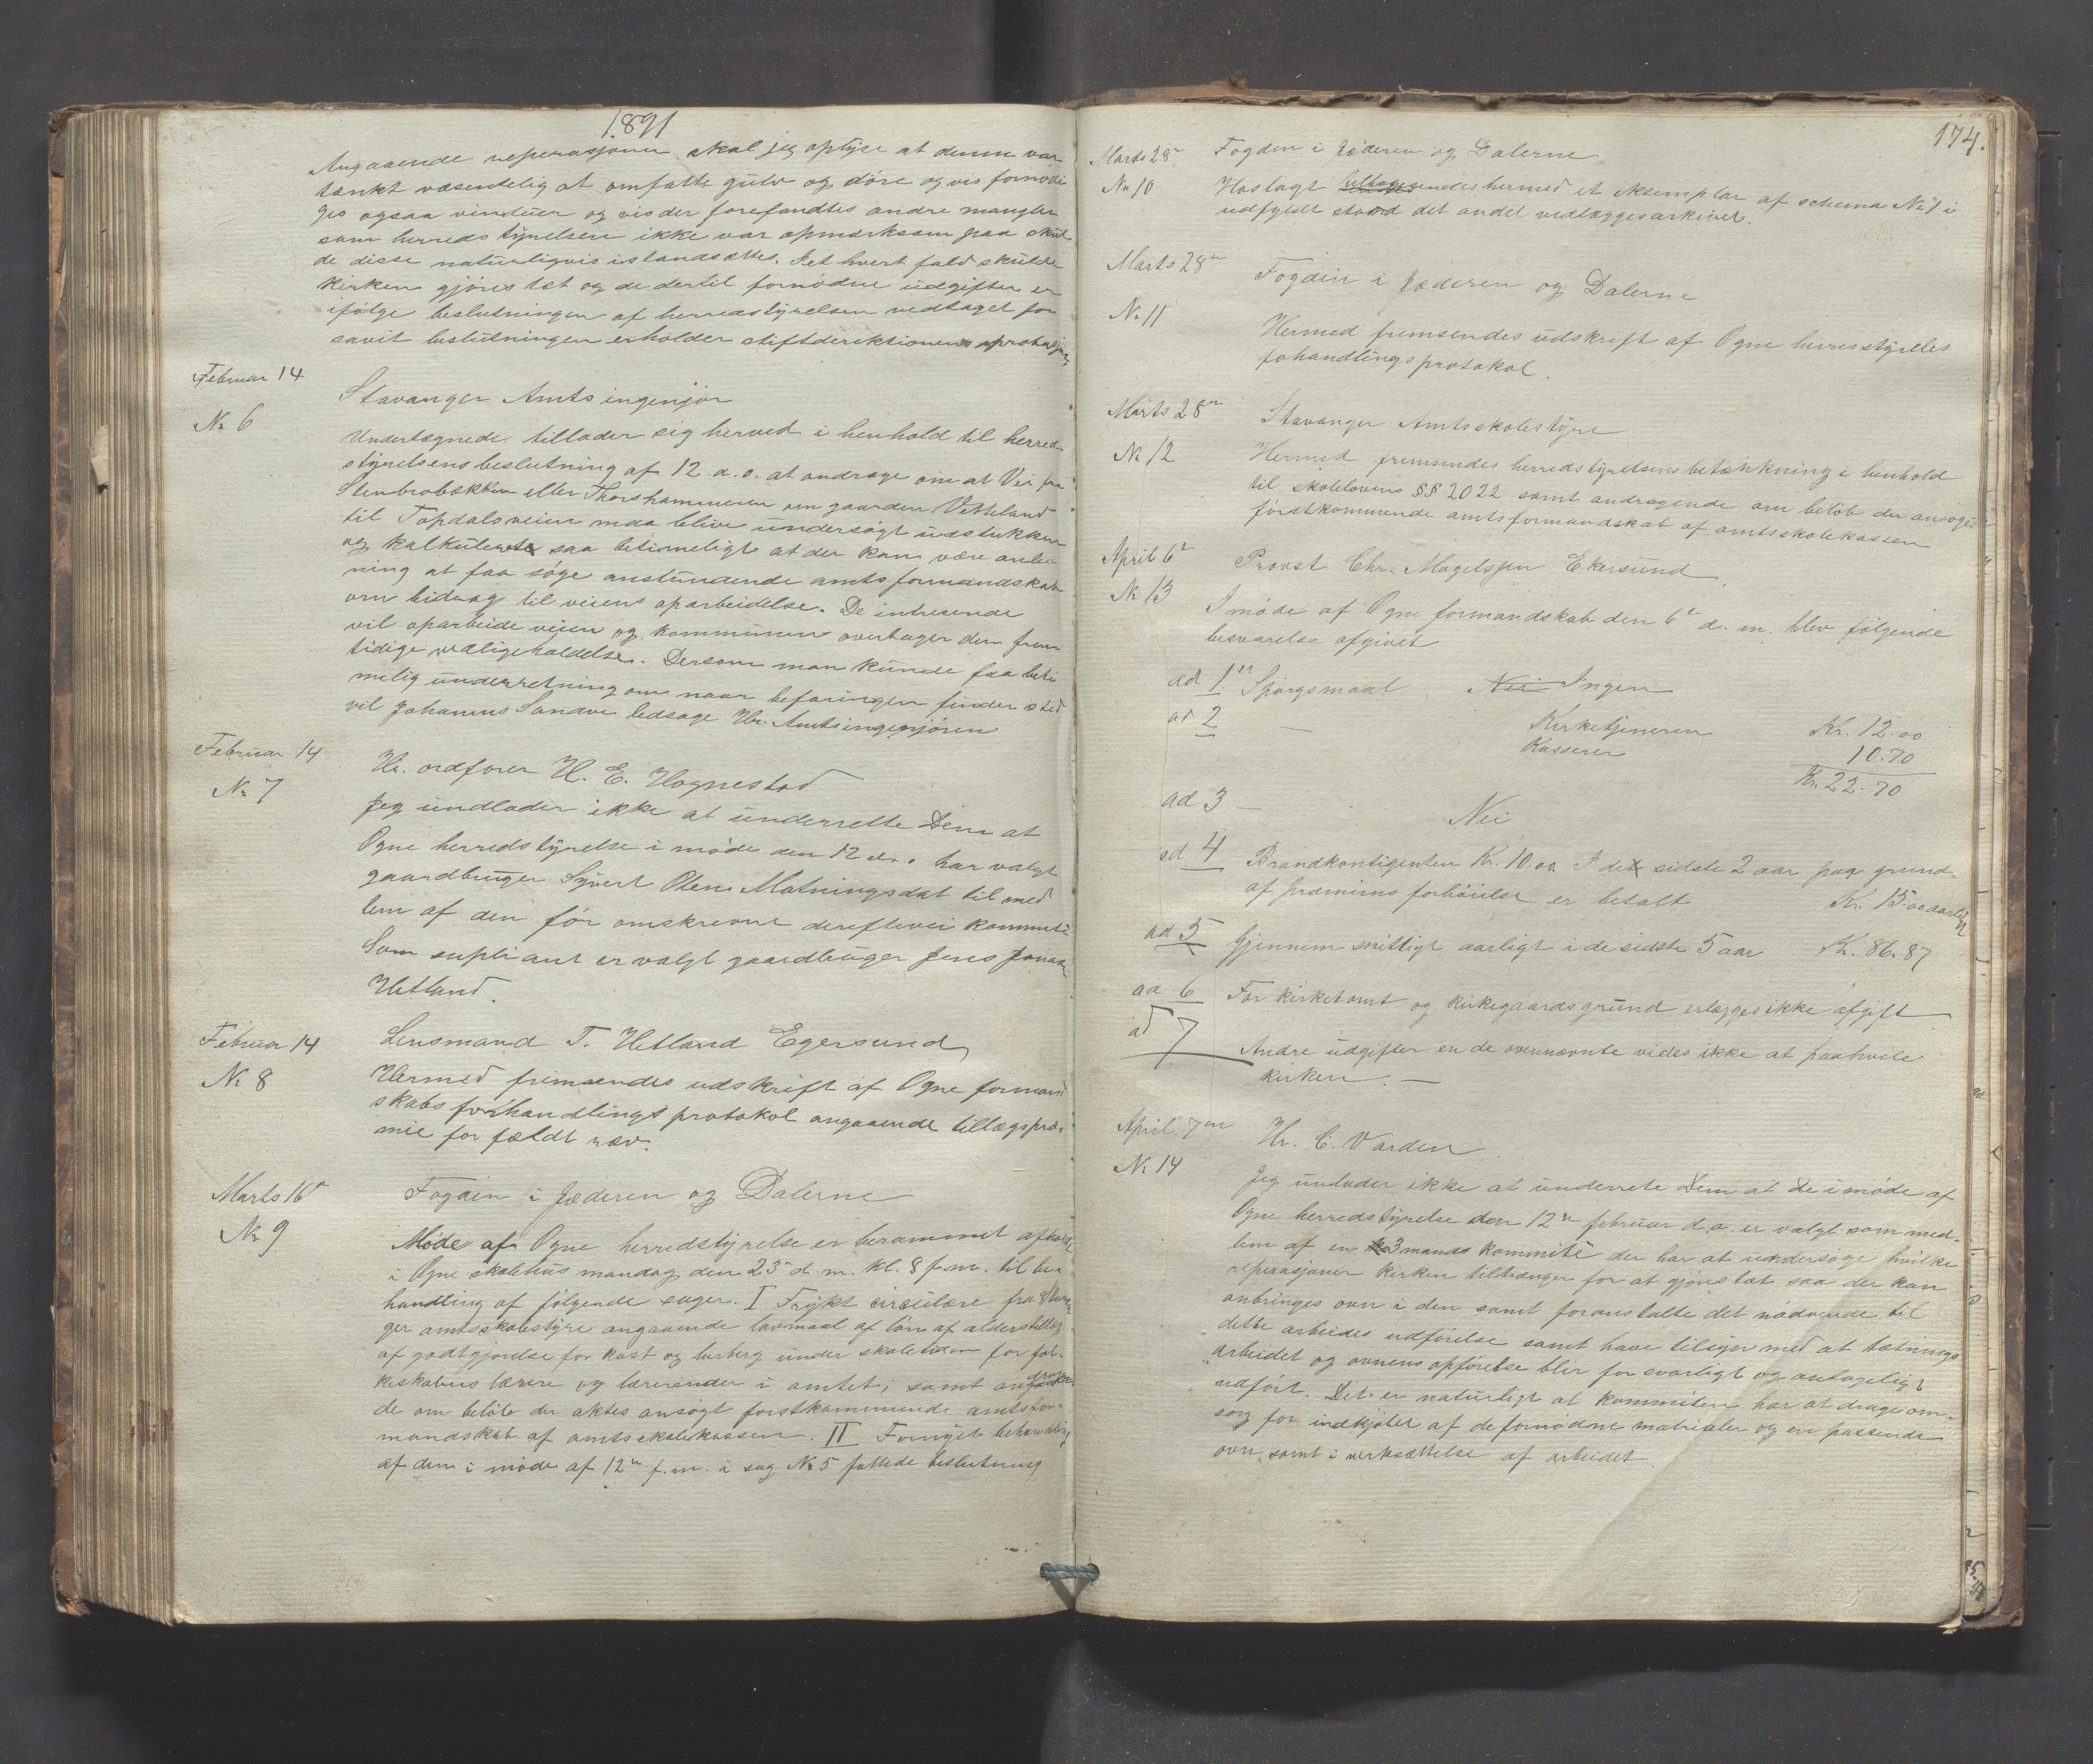 1891
Angaaende reperasjonen skal jeg oplyse at denne var
tænkt væsentelig at omfatte gulv og döre og vis fornödi
ges ogsaa vinduer og vis der forefandtes andre mangler
som herredstyrelsen ikke var opmærksom paa skul
de disse naturligvis istandsættes. I et hvert fald skulde
kirken gjöres tæt og de dertil fornödne udgifter er
ifölge beslutningen af herredstyrelsen vedtaget for
savit beslutningen erholder stiftderiktionens
Februar 14
Stavanger Amtsingenjör
No 6
Undertegnede tillader sig herved i henhold til herred
styrelsens beslutning af 12 d. o. at andrage om at Vei fra
Stenbrobækken eller Thorshammeren om gaarden Vetteland
til Topdalsveien maa blive undersögt udstukken
og kalkuleret saa betimeligt at der kan være anled
ning at faa söge anstundende amtsformandskab
om bidrag til veiens oparbeidelse. De intresende
vil oparbeide veien og kommunen overtager den frem
tidige vedligeholdelse. Dersom man kunde faa beti
melig underretning om naar befaringen finder sted
vil Johannes Sandve ledsage Hr. Amtsingenjören
Februar 14
No 7
Hr. ordförer H. E. Hognestad
Jeg undlader ikke at underrette Dem at
Ogne herredstyrelse i möde den 12 d. . har valgt
gaardbruger Syvert Olens Matningsdal til med
lem af den för omskrevne kommite
Som supliant er valgt gaardbruger Jens Jonas
Hetland.
Februar 14
Lensmand T. Hetland Egersund
No 8
Hermed fremsendes udskrift af Ogne formand
skabs forhandlingsprotokol angaaende tillægspræ-
mie for fældt ræv.
Marts 16de
Fogden i Jæderen og Dalerne
No 9
Möde af Ogne herredstyrelse er berammet afholdt
i Ogne skolehus mandag den 23de d. m. kl. 8 f.m. til be
handling af fölgende sager. I Trykt circulære fra Stavan
ger amtsskolestyre angaaende lavmaal af lön af alderstillæg
af godtgjörelse for kost og herberg under skoletiden for fol-
keskolens lærere og lærerinder i amtet, samt andragen
de om belöb der aktes ansögt forstkommende amtsfor-
mandskab af amtsskolekassen. II Fornyet behandling
af den i möde af 12te f.m. i sag No 5 fattede beslutning
174.
Marts 28de
Fogden i Jæderen og Dalerne
No 10
Hoslagt tilbagesendes hermed et eksemplar af schema No 1 i
udfyldt stand det andet vedlægges arkivet.
Marts 28de
Fogden i Jæderen og Dalerne
No 11
Hermed fremsendes udskreft af Ogne herresstyreles
fohandlingsprotokol.
Marts 28de
Stavanger Amtsskolestyre
No 12
Hermed fremsendes herredstyrelsens betænkning i henhold
til skolelovens §§ 20 22 samt andragende om belöb der ansöges
förstkommende amtsformandskab af amtsskolekassen
April 6te
Provst Chr. Magelssen Ekersund
No 13
I möde af Ogne formandskab den 6te d. m. blev fölgende
besvarelse afgivet
ad 1ste Spörgsmaal Nei Ingen
ad 2 — Kirketjeneren Kr. 12.00
Kasserer 10.70
Kr. 22.70
ad 3 — Nei
ad 4 Brandkontigenten Kr. 10.00. I det sidste 2 aar paa grund
af præmiens forhöielse er betalt Kr. 15.00 aarlig
ad 5 Gjennemsnittligt aarligt i de sidste 5 aar Kr. 86.87
ad 6 For kirketomt og kirkegaardsgrund erlægges ikke afgift
ad 7 Andre udgifter en de ovennævnte vides ikke at paahvile
kirken. —
April 7de
Hr. C. Varden
No 14
Jeg undlader ikke at underrete Dem at De i möde af
Ogne herredstyrelse den 12te februar d.a. er valgt som med-
lem af en 3 mands kommité der har at undersöge hvilke
reperasjoner kirken tiltrænger for at gjöres tæt saa der kan
anbringes ovn i den samt foranstalte det nödvende til
dette arbeides udförelse samt have tilsyn med at tætnings
arbeidet og ovnens opförelse blir forsvarligt og antageligt
udfört. Det er naturligt at kommiten har at drage om-
sorg for indkjöbet af de fornödne matrialer og en passende
ovn samt iverksættelse af arbeidet.